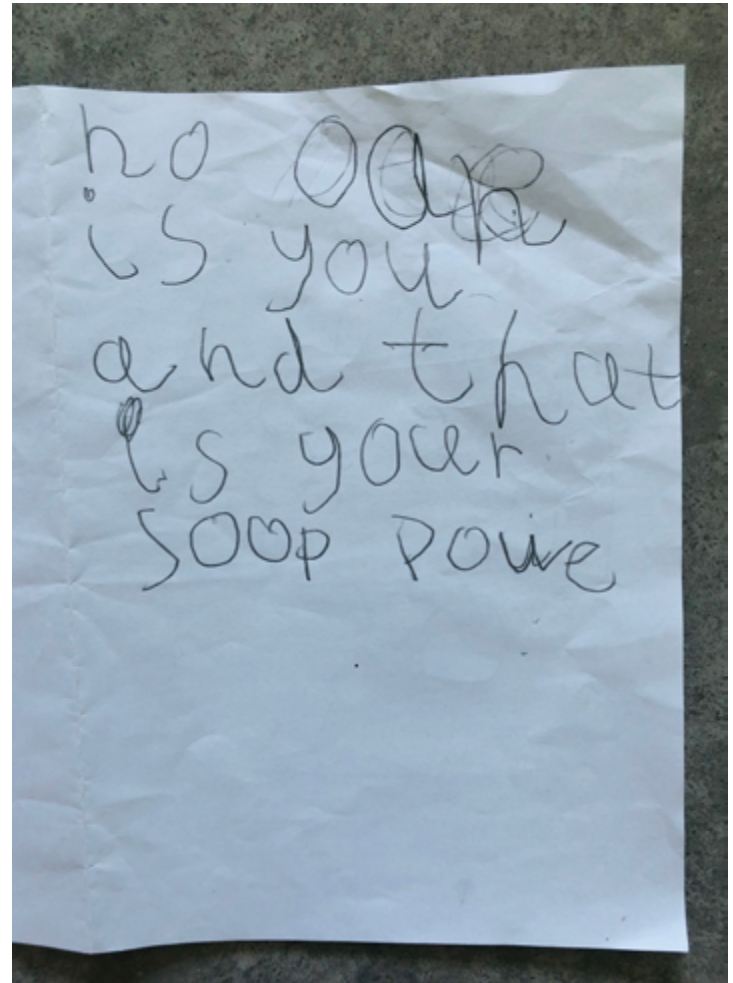 no oan
is you
and that
is your
soop powe